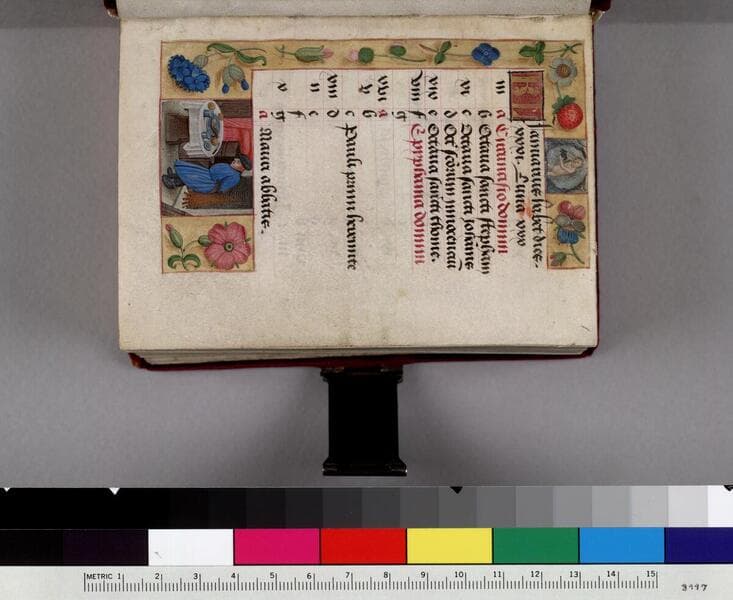 KL Januarius habet dies.
xxxi. Luna xxx
iii a Circuncisio domini
b Octaua sancti stephani
xi c Octaua sancti Johannis
d innocentium
xix e Octaua sancti thome.
viii f Epyphania domini
g
xvi a
v b
c Pauli primi heremite
xiii d
ii e
f
x g
a Mauri abbatis.
METRIC 1 2 3 4 5 6 7 8 9 10 11 12 13 14 15